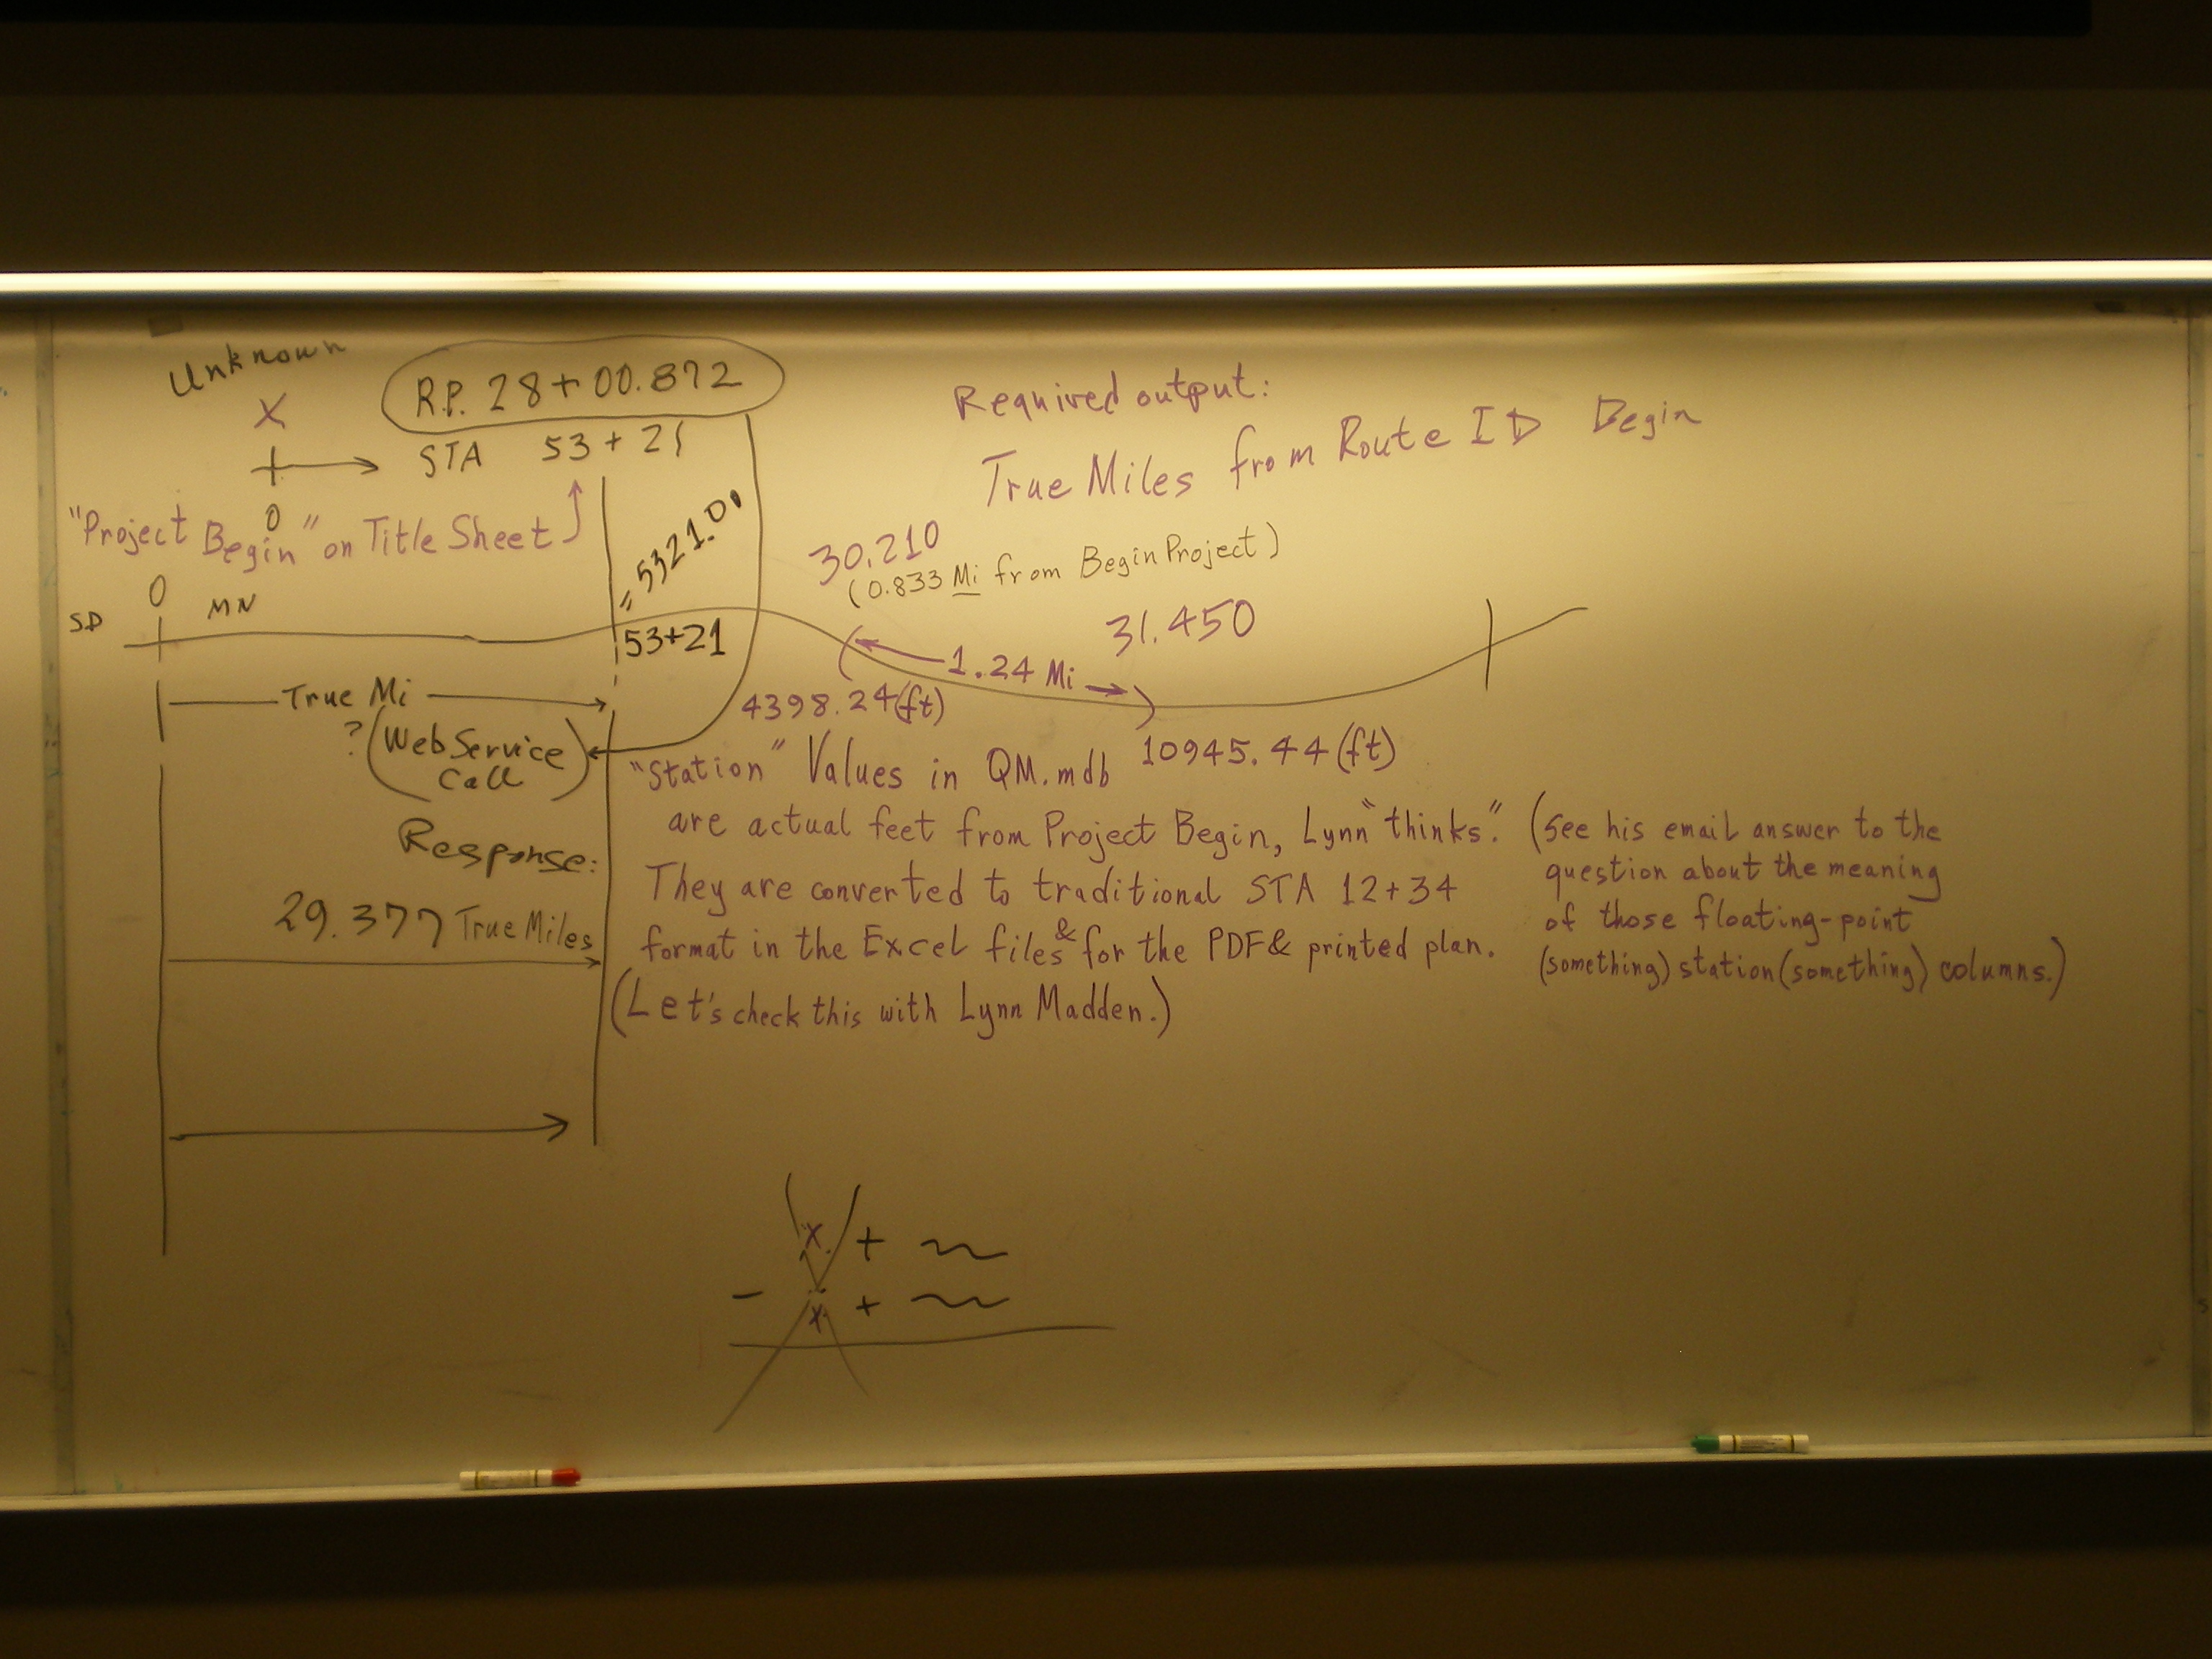 Unknown
X
R.P. 28+00.872
STA 53+21
0
"Project Begin" on Title Sheet
= 5321.0
0
SD MN
53+21
True Mi
? (Web Service
Call)
Response:
29.377 True Miles
Required output:
True Miles from Route ID Begin
30.210
(0.833 Mi from Begin Project)
31.450
1.24 Mi
4398.24(ft)
10945.44(ft)
"Station" Values in QM.mdb
are actual feet from Project Begin, Lynn "thinks."
They are converted to traditional STA 12+34
format in the Excel files & for the PDF & printed plan.
(Let's check this with Lynn Madden.)
(See his email answer to the
question about the meaning
of those floating-point
(something) station (something) columns.)
X +
- X +